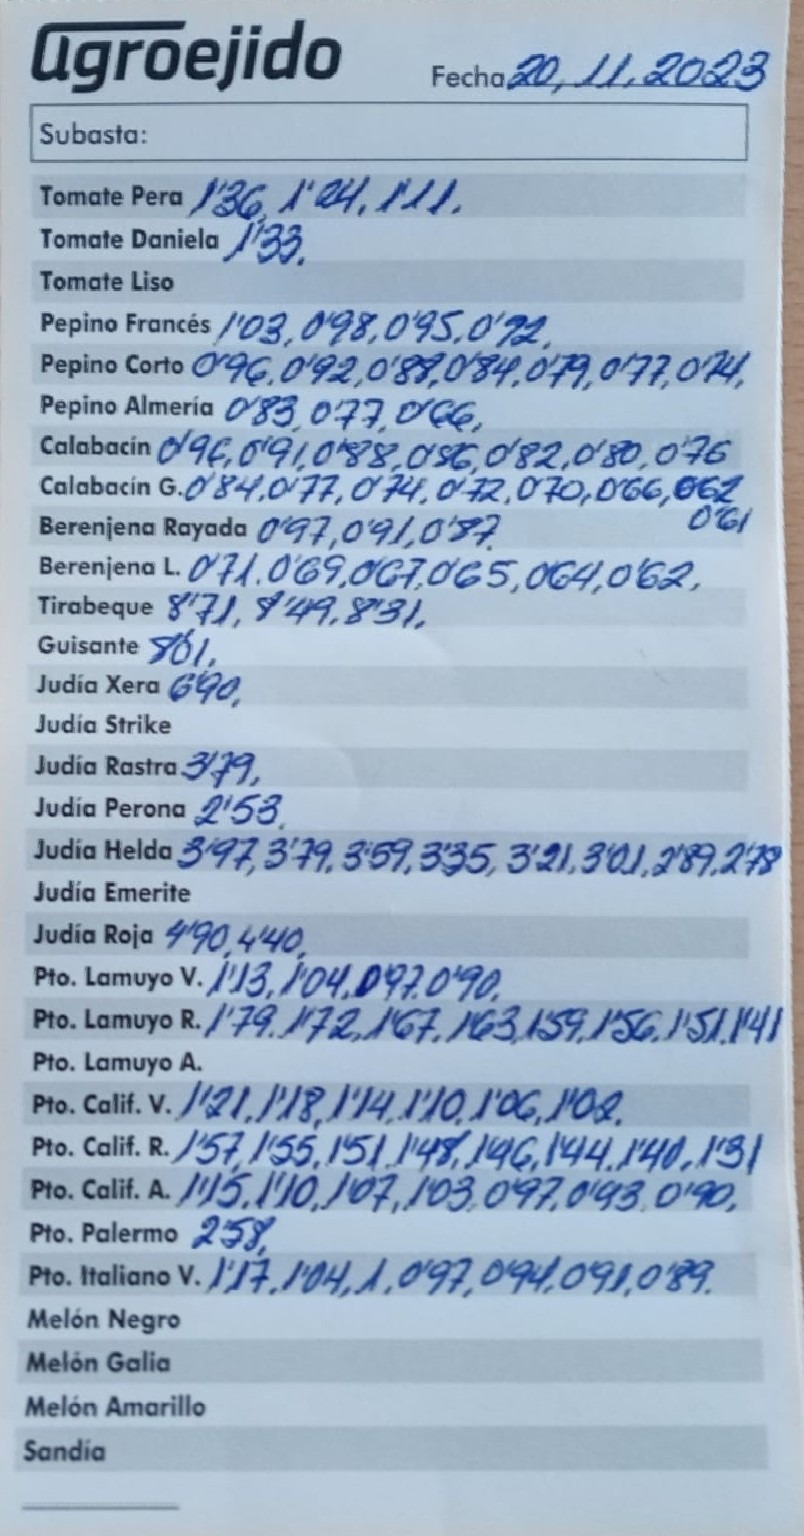 agroejido
Fecha 20, 11, 2023
Subasta:
Tomate Pera 1'36, 1'24, 1'11.
Tomate Daniela 1'33.
Tomate Liso
Pepino Francés 1'03, 0'98, 0'95, 0'72.
Pepino Corto 0'96, 0'92, 0'88, 0'84, 0'79, 0'77, 0'74.
Pepino Almería 0'83, 0'77, 0'66,
Calabacín 0'96, 0'91, 0'88, 0'86, 0'82, 0'80, 0'76
Calabacín G. 0'84, 0'77, 0'74, 0'72, 0'70, 0'66, 0'62
0'61
Berenjena Rayada 0'97, 0'91, 0'87.
Berenjena L. 0'71, 0'69, 0'67, 0'65, 0'64, 0'62,
Tirabeque 8'71, 8'49, 8'31,
Guisante 8'01,
Judía Xera 6'90,
Judía Strike
Judía Rastra 3'79,
Judía Perona 2'53.
Judía Helda 3'97, 3'79, 3'59, 3'35, 3'21, 3'01, 2'89, 2'78
Judía Emerite
Judía Roja 4'90, 4'40,
Pto. Lamuyo V. 1'13, 1'04, 0'97, 0'90,
Pto. Lamuyo R. 1'79, 1'72, 1'67, 1'63, 1'59, 1'56, 1'51, 1'41
Pto. Lamuyo A.
Pto. Calif. V. 1'21, 1'18, 1'14, 1'10, 1'06, 1'02.
Pto. Calif. R. 1'57, 1'55, 1'51, 1'48, 1'46, 1'44, 1'40, 1'31
Pto. Calif. A. 1'15, 1'10, 1'07, 1'03, 0'97, 0'93, 0'90,
Pto. Palermo 2'58,
Pto. Italiano V. 1'17, 1'04, 1, 0'97, 0'94, 0'91, 0'89.
Melón Negro
Melón Galia
Melón Amarillo
Sandía